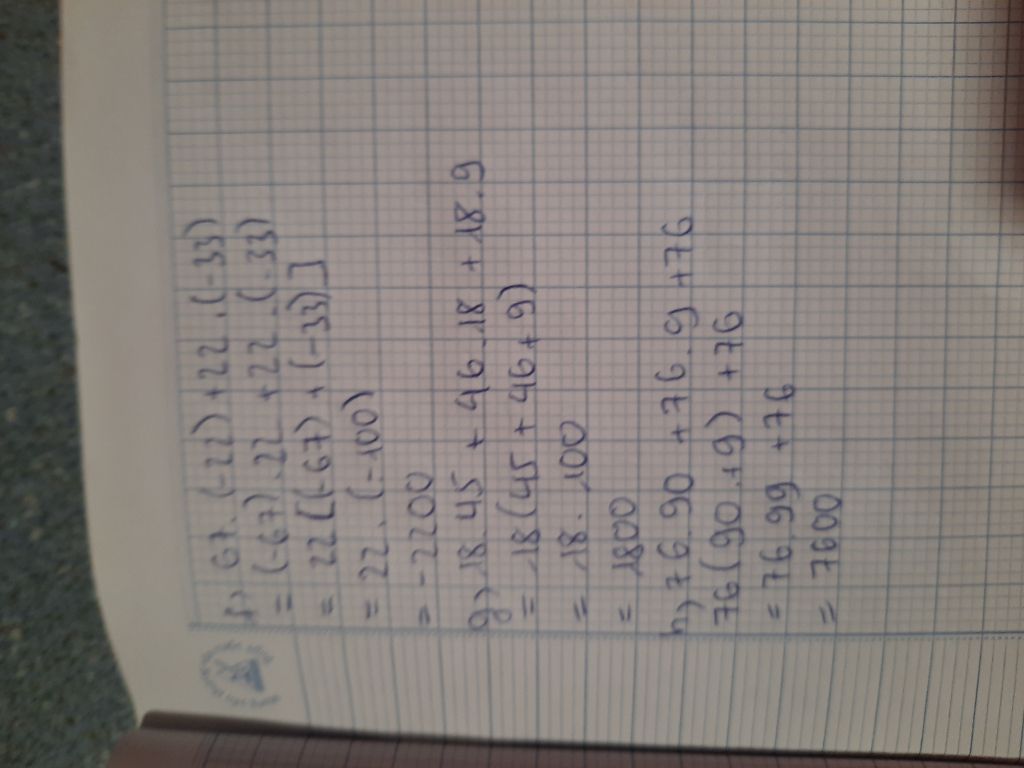 f, 67.(-22) + 22.(-33)
= (-67).22 + 22.(-33)
= 22[(-67) + (-33)]
= 22.(-100)
= -2200
g, 18.45 + 46.18 + 18.9
= 18(45 + 46 + 9)
= 18.100
= 1800
h, 76.90 + 76.9 + 76
76(90 + 9) + 76
= 76.99 + 76
= 7600